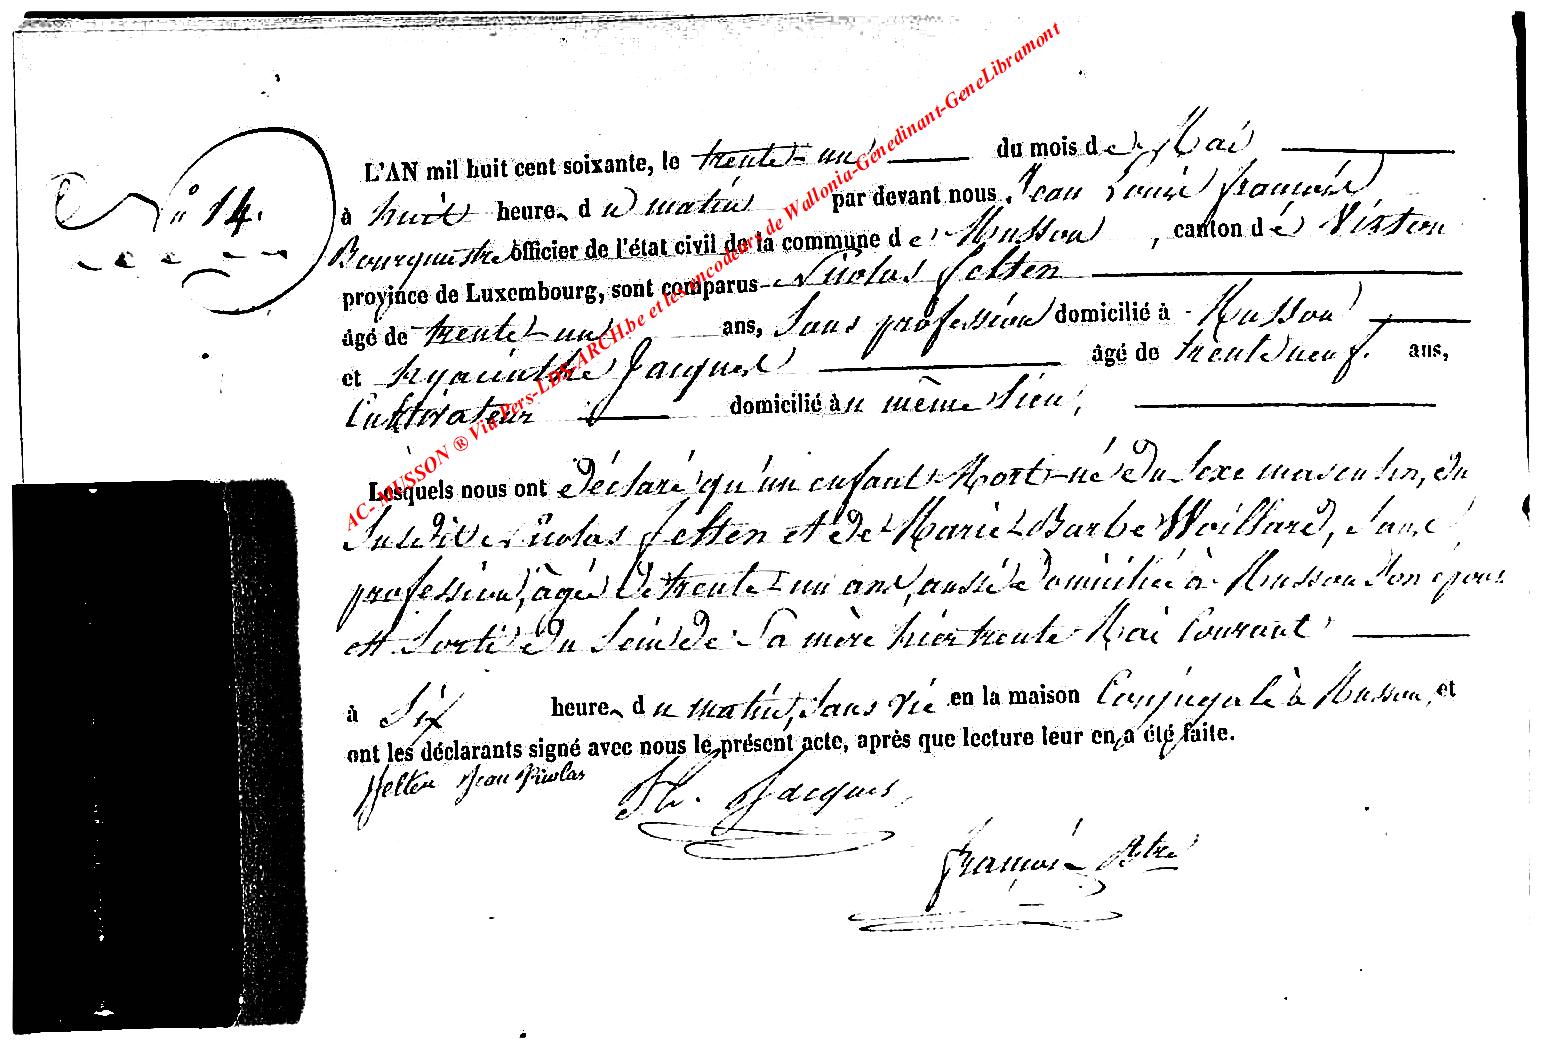 N° 14.
L'AN mil huit cent soixante, le trente-un du mois de Mai
à huit heures du matin par devant nous, Jean Louis François
Bourgmestre officier de l'état civil de la commune de Musson, canton de Virton
province de Luxembourg, sont comparus Nicolas Felten
âgé de trente-un ans, Sans profession domicilié à Musson
et hyacinthe Jacques âgé de trente neuf ans,
Cultivateur domicilié au même lieu,
Lesquels nous ont Déclaré qu'un enfant Mort-né du Sexe masculin, du
Susdit Nicolas Felten et de Marie-Barbe Woillard, Sans
profession, âgée de trente-un ans, aussi domiciliée à Musson Son épouse
est Sorti du Sein de Sa mère hier trente Mai Courant
à Six heures du matin, Sans vie en la maison Conjugale à Musson, et
ont les déclarants signé avec nous le présent acte, après que lecture leur en a été faite.
Felten Jean Nicolas
H. Jacques
François Btre
AC-MUSSON ® Via Pers-LUXARCH.be et les encodeurs de Wallonia-Genedinant-GeneLibramont